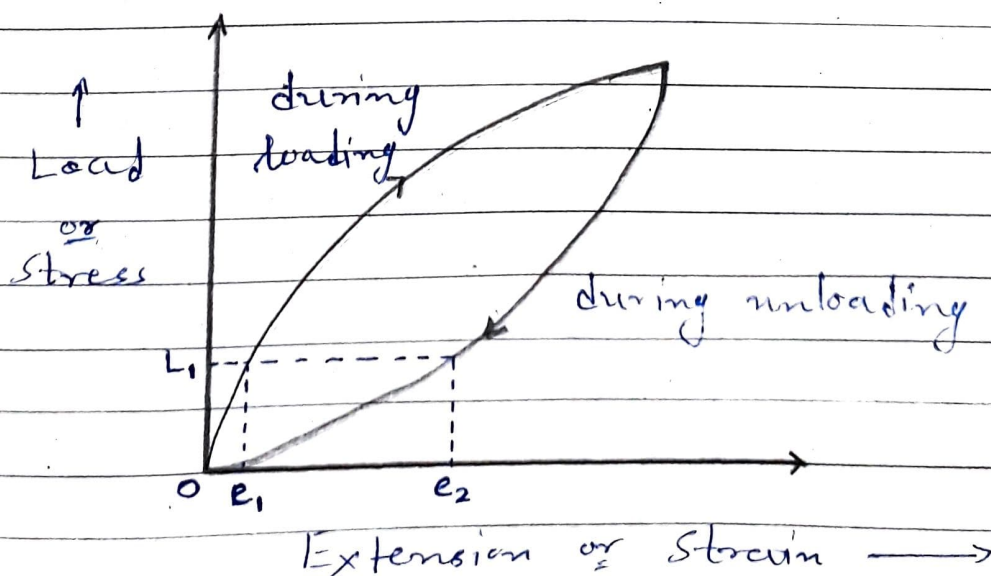 ↑
Load
or
Stress
during
loading
during unloading
L₁
O e₁ e₂
Extension or Strain →